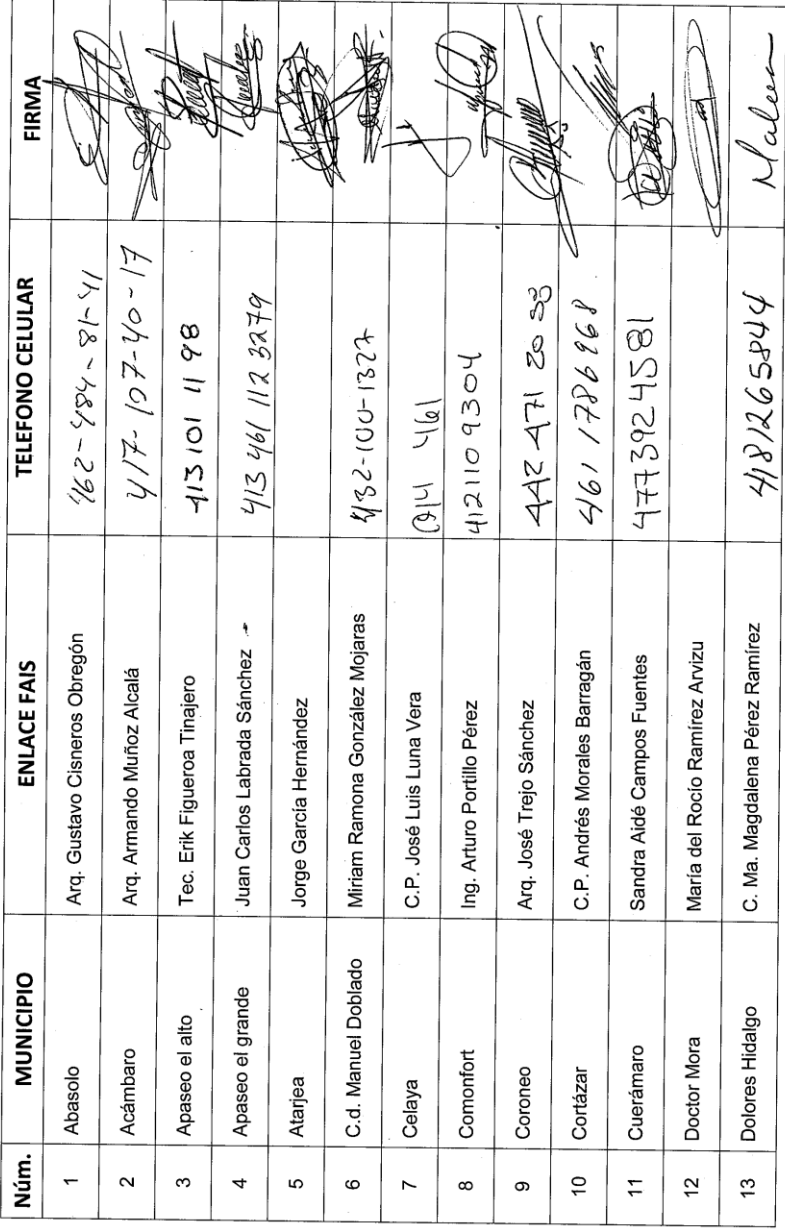 Núm. MUNICIPIO ENLACE FAIS TELEFONO CELULAR FIRMA
1 Abasolo Arq. Gustavo Cisneros Obregón 462-484-81-41
2 Acámbaro Arq. Armando Muñoz Alcalá 417-107-40-17
3 Apaseo el alto Tec. Erik Figueroa Tinajero 413 101 11 98
4 Apaseo el grande Juan Carlos Labrada Sánchez 413 461 112 3279
5 Atarjea Jorge García Hernández
6 C.d. Manuel Doblado Miriam Ramona González Mojaras 432-100-1327
7 Celaya C.P. José Luis Luna Vera 461
8 Comonfort Ing. Arturo Portillo Pérez 4121109304
9 Coroneo Arq. José Trejo Sánchez 442 471 20 33
10 Cortázar C.P. Andrés Morales Barragán 461 1786968
11 Cuerámaro Sandra Aidé Campos Fuentes 4773924581
12 Doctor Mora María del Rocío Ramírez Arvizu
13 Dolores Hidalgo C. Ma. Magdalena Pérez Ramírez 4181265844